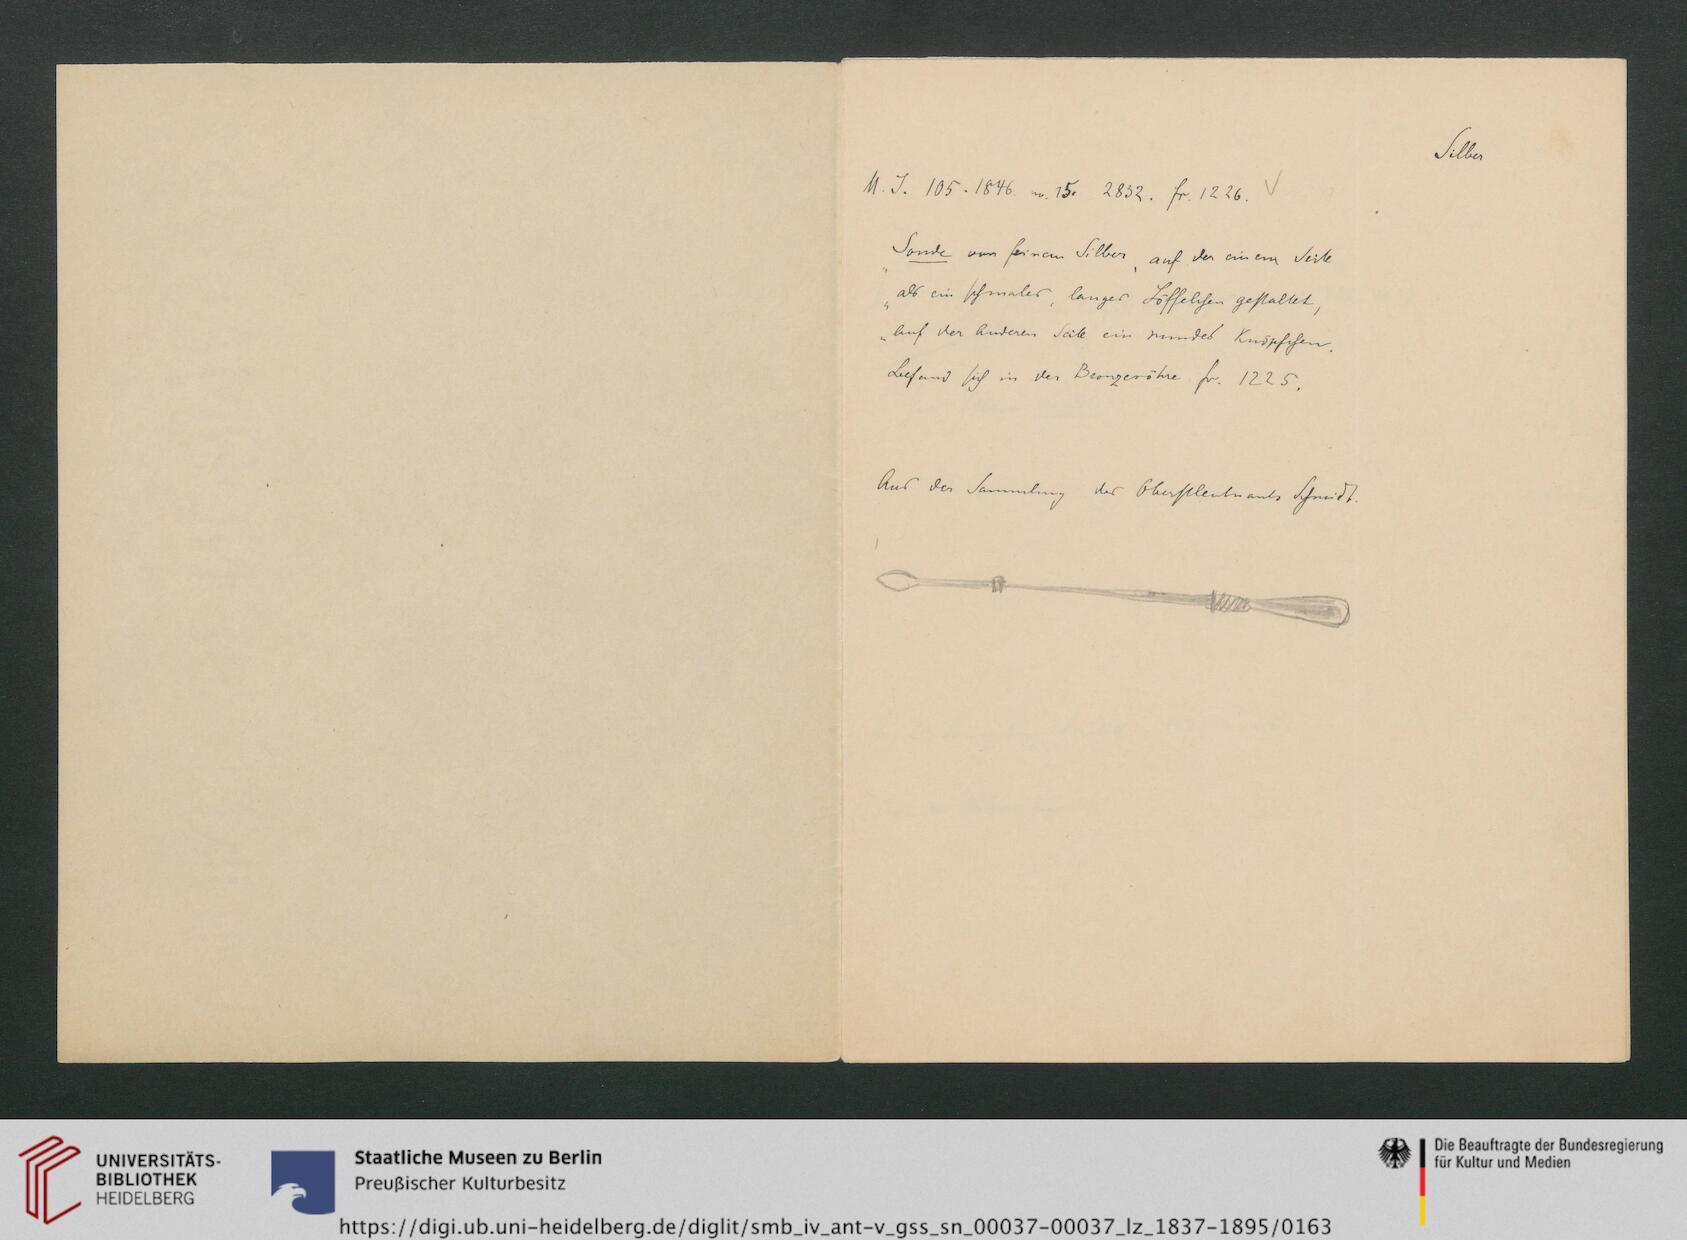 Silber
M. I. 105. 1846. no. 15. 2832. fr. 1226. √
„Sonde von feinem Silber, auf der einen Seite
„als ein schmales, langes Löffelchen gestaltet,
„auf der anderen Seite ein rundes Knöpfchen.
Befand sich in der Bronzeröhre fr. 1225.
Aus der Sammlung des Oberstleutnants Schmidt.
UNIVERSITÄTS-
BIBLIOTHEK
HEIDELBERG
Staatliche Museen zu Berlin
Preußischer Kulturbesitz
https://digi.ub.uni-heidelberg.de/diglit/smb_iv_ant-v_gss_sn_00037-00037_lz_1837-1895/0163
Die Beauftragte der Bundesregierung
für Kultur und Medien